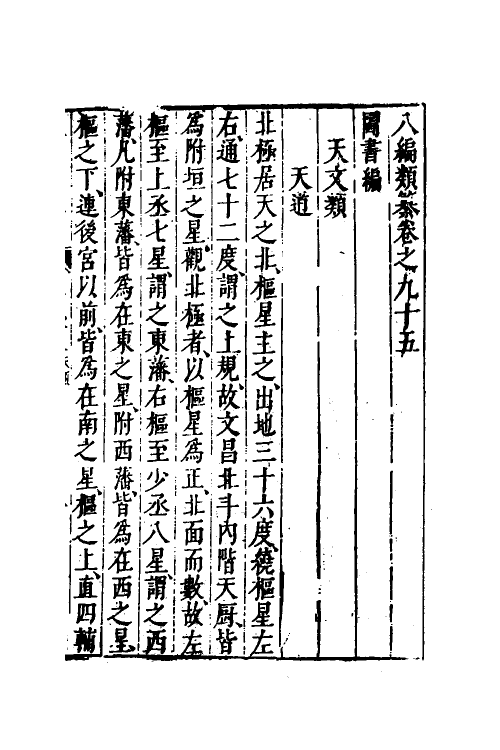 八編類纂卷之九十五
圖書編
天文類
天道
北極居天之北、樞星主之、出地三十六度、繞樞星左
右、通七十二度、謂之上規、故文昌北斗內階天厨、皆
為附垣之星、觀北極者、以樞星為正、北面而數、故左
樞至上丞七星、謂之東藩、右樞至少丞八星、謂之西
藩、凡附東藩、皆為在東之星、附西藩、皆為在西之星、
樞之下、連後宮以前、皆為在南之星、樞之上、直四輔